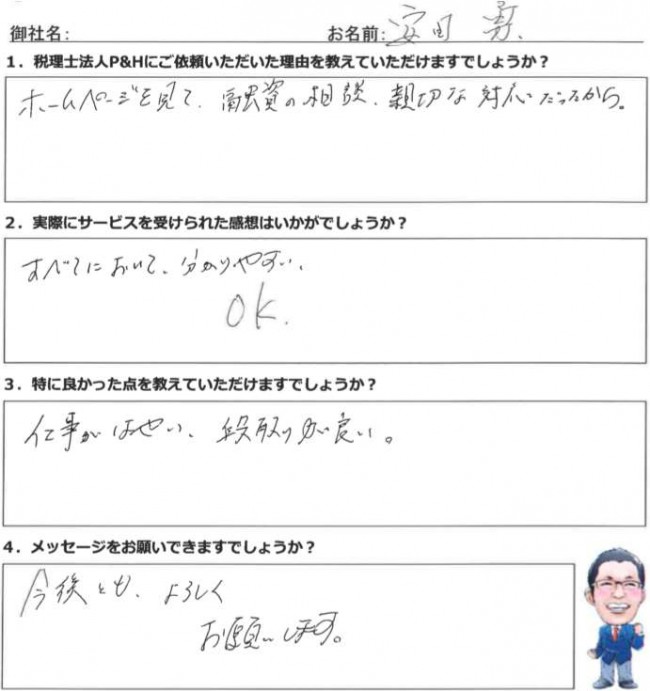 御社名: お名前: 安田 勇
1. 税理士法人P&Hにご依頼いただいた理由を教えていただけますでしょうか？
ホームページを見て、融資の相談、親切な対応だったから。
2. 実際にサービスを受けられた感想はいかがでしょうか？
すべてにおいて、分かりやすい、
OK.
3. 特に良かった点を教えていただけますでしょうか？
仕事がはやい、段取りが良い。
4. メッセージをお願いできますでしょうか？
今後とも、よろしく
お願いします。